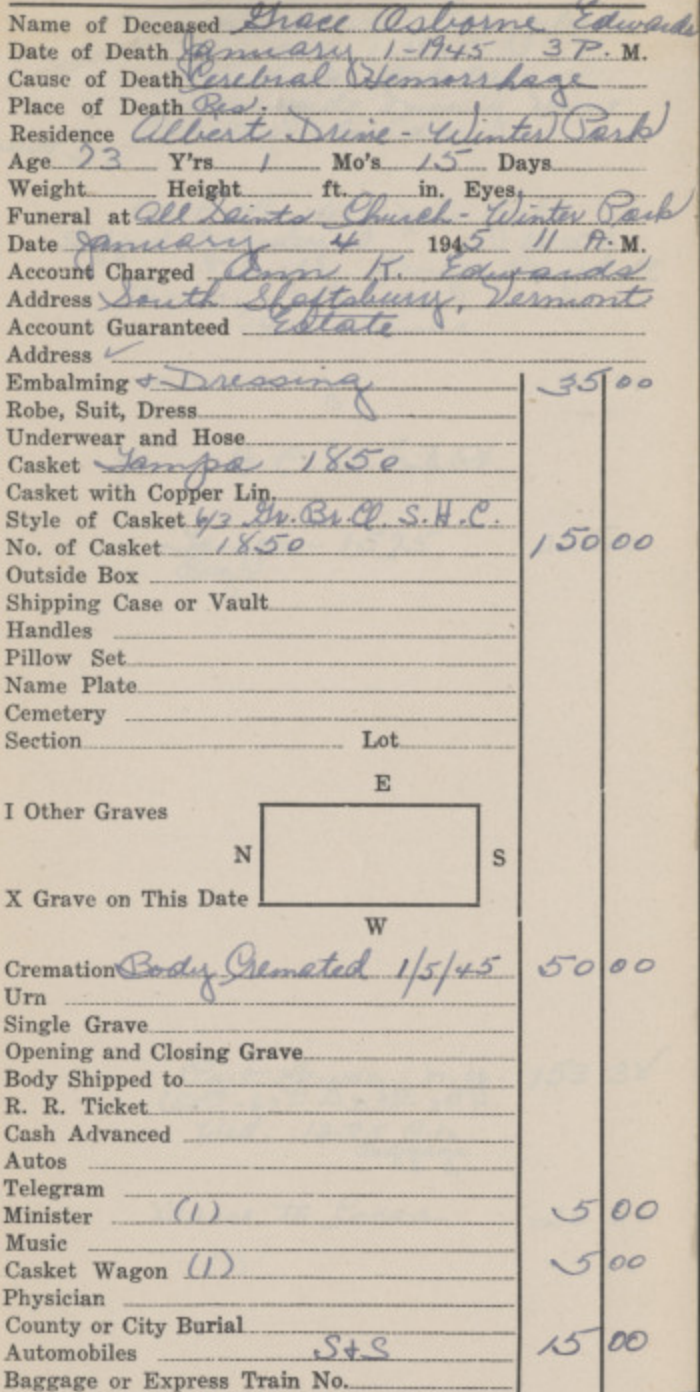 Name of Deceased Grace Osborne Edwards
Date of Death January 1-1945 3 P. M.
Cause of Death Cerebral Hemorrhage
Place of Death Res.
Residence Albert Drive - Winter Park
Age 73 Y'rs 1 Mo's 15 Days
Weight Height ft. in. Eyes
Funeral at All Saints Church - Winter Park
Date January 4 1945 11 A. M.
Account Charged Ann K. Edwards
Address South Shaftsbury, Vermont
Account Guaranteed Estate
Address ✓
Embalming & Dressing 35 00
Robe, Suit, Dress
Underwear and Hose
Casket Tampa 1850
Casket with Copper Lin.
Style of Casket 6/3 Gr. Br. Cl. S.H.C.
No. of Casket 1850 150 00
Outside Box
Shipping Case or Vault
Handles
Pillow Set
Name Plate
Cemetery
Section Lot
E
I Other Graves
N S
X Grave on This Date
W
Cremation Body Cremated 1/5/45 50 00
Urn
Single Grave
Opening and Closing Grave
Body Shipped to
R. R. Ticket
Cash Advanced
Autos
Telegram
Minister (1) 5 00
Music
Casket Wagon (1) 5 00
Physician
County or City Burial
Automobiles S&S 15 00
Baggage or Express Train No.